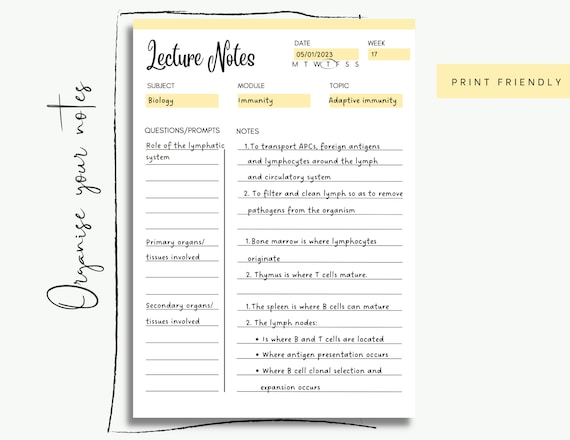 Organise your notes
PRINT FRIENDLY
Lecture Notes
DATE
WEEK
05/01/2023
17
M T W T F S S
SUBJECT
MODULE
TOPIC
Biology
Immunity
Adaptive immunity
QUESTIONS/PROMPTS
NOTES
Role of the lymphatic
system
1. To transport APCs, foreign antigens
and lymphocytes around the lymph
and circulatory system
2. To filter and clean lymph so as to remove
pathogens from the organism
Primary organs/
tissues involved
1. Bone marrow is where lymphocytes
originate
2. Thymus is where T cells mature.
Secondary organs/
tissues involved
1. The spleen is where B cells can mature
2. The lymph nodes:
• Is where B and T cells are located
• Where antigen presentation occurs
• Where B cell clonal selection and
expansion occurs